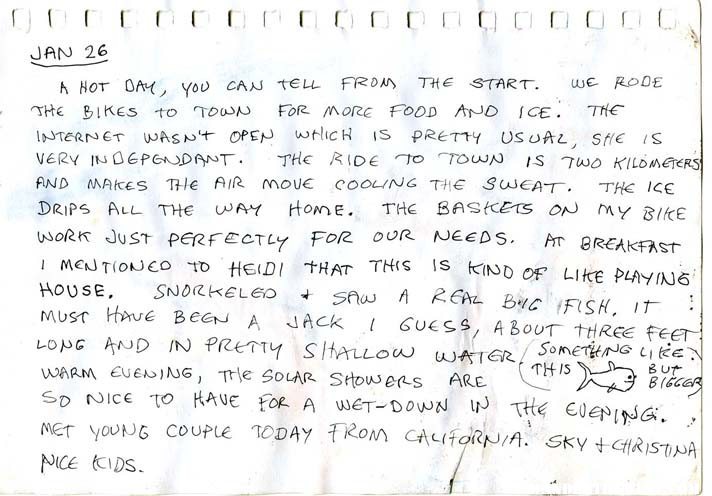 JAN 26
A HOT DAY, YOU CAN TELL FROM THE START. WE RODE
THE BIKES TO TOWN FOR MORE FOOD AND ICE. THE
INTERNET WASN'T OPEN WHICH IS PRETTY USUAL, SHE IS
VERY INDEPENDANT. THE RIDE TO TOWN IS TWO KILOMETERS
AND MAKES THE AIR MOVE COOLING THE SWEAT. THE ICE
DRIPS ALL THE WAY HOME. THE BASKETS ON MY BIKE
WORK JUST PERFECTLY FOR OUR NEEDS. AT BREAKFAST
I MENTIONED TO HEIDI THAT THIS IS KIND OF LIKE PLAYING
HOUSE. SNORKELED + SAW A REAL BIG FISH. IT
MUST HAVE BEEN A JACK I GUESS, ABOUT THREE FEET
LONG AND IN PRETTY SHALLOW WATER (SOMETHING LIKE
THIS BUT
BIGGER)
WARM EVENING, THE SOLAR SHOWERS ARE
SO NICE TO HAVE FOR A WET-DOWN IN THE EVENING.
MET YOUNG COUPLE TODAY FROM CALIFORNIA. SKY + CHRISTINA
NICE KIDS.